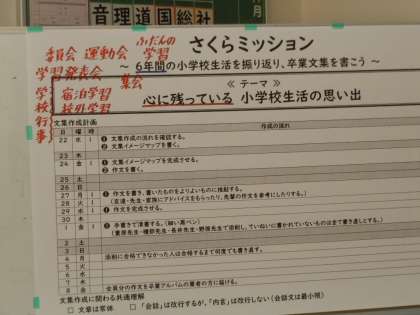 音理道国総社
月
委員会 運動会 ふだんの学習
学習発表会 集会
学校行事 宿泊学習 校外学習
さくらミッション
～ 6年間の小学校生活を振り返り、卒業文集を書こう ～
≪ テーマ ≫
心に残っている 小学校生活の思い出
文集作成計画
日 曜 時 作成の流れ
22 水 1 ❶ 文集作成の流れを確認する。
❷ 文集イメージマップを書く。
23 木
24 金 1 ❶ 文集イメージマップを完成させる。
❷ 作文を書く。
25 土
26 日
27 月 1 ❶ 作文を書き、書いたものをよりよいものに推敲する。
28 火 1 （友達・先生・家族にアドバイスをもらったり、先輩の作文を参考にしたりする。）
29 水 1 ❷ 作文を完成させる。
30 木
1 金 1 ❸ 手書きで清書する。（細い黒ペン）
2 土
3 日
4 月 添削に合格できなかった人は合格するまで何度でも書き直す。
5 火
6 水
7 木
8 金 全員分の作文を卒業アルバムの業者の方に届ける。
文集作成に関わる共通理解
□ 文章は常体 □ 「会話」は改行するが、"内言"は改行しない（会話文は最小限）